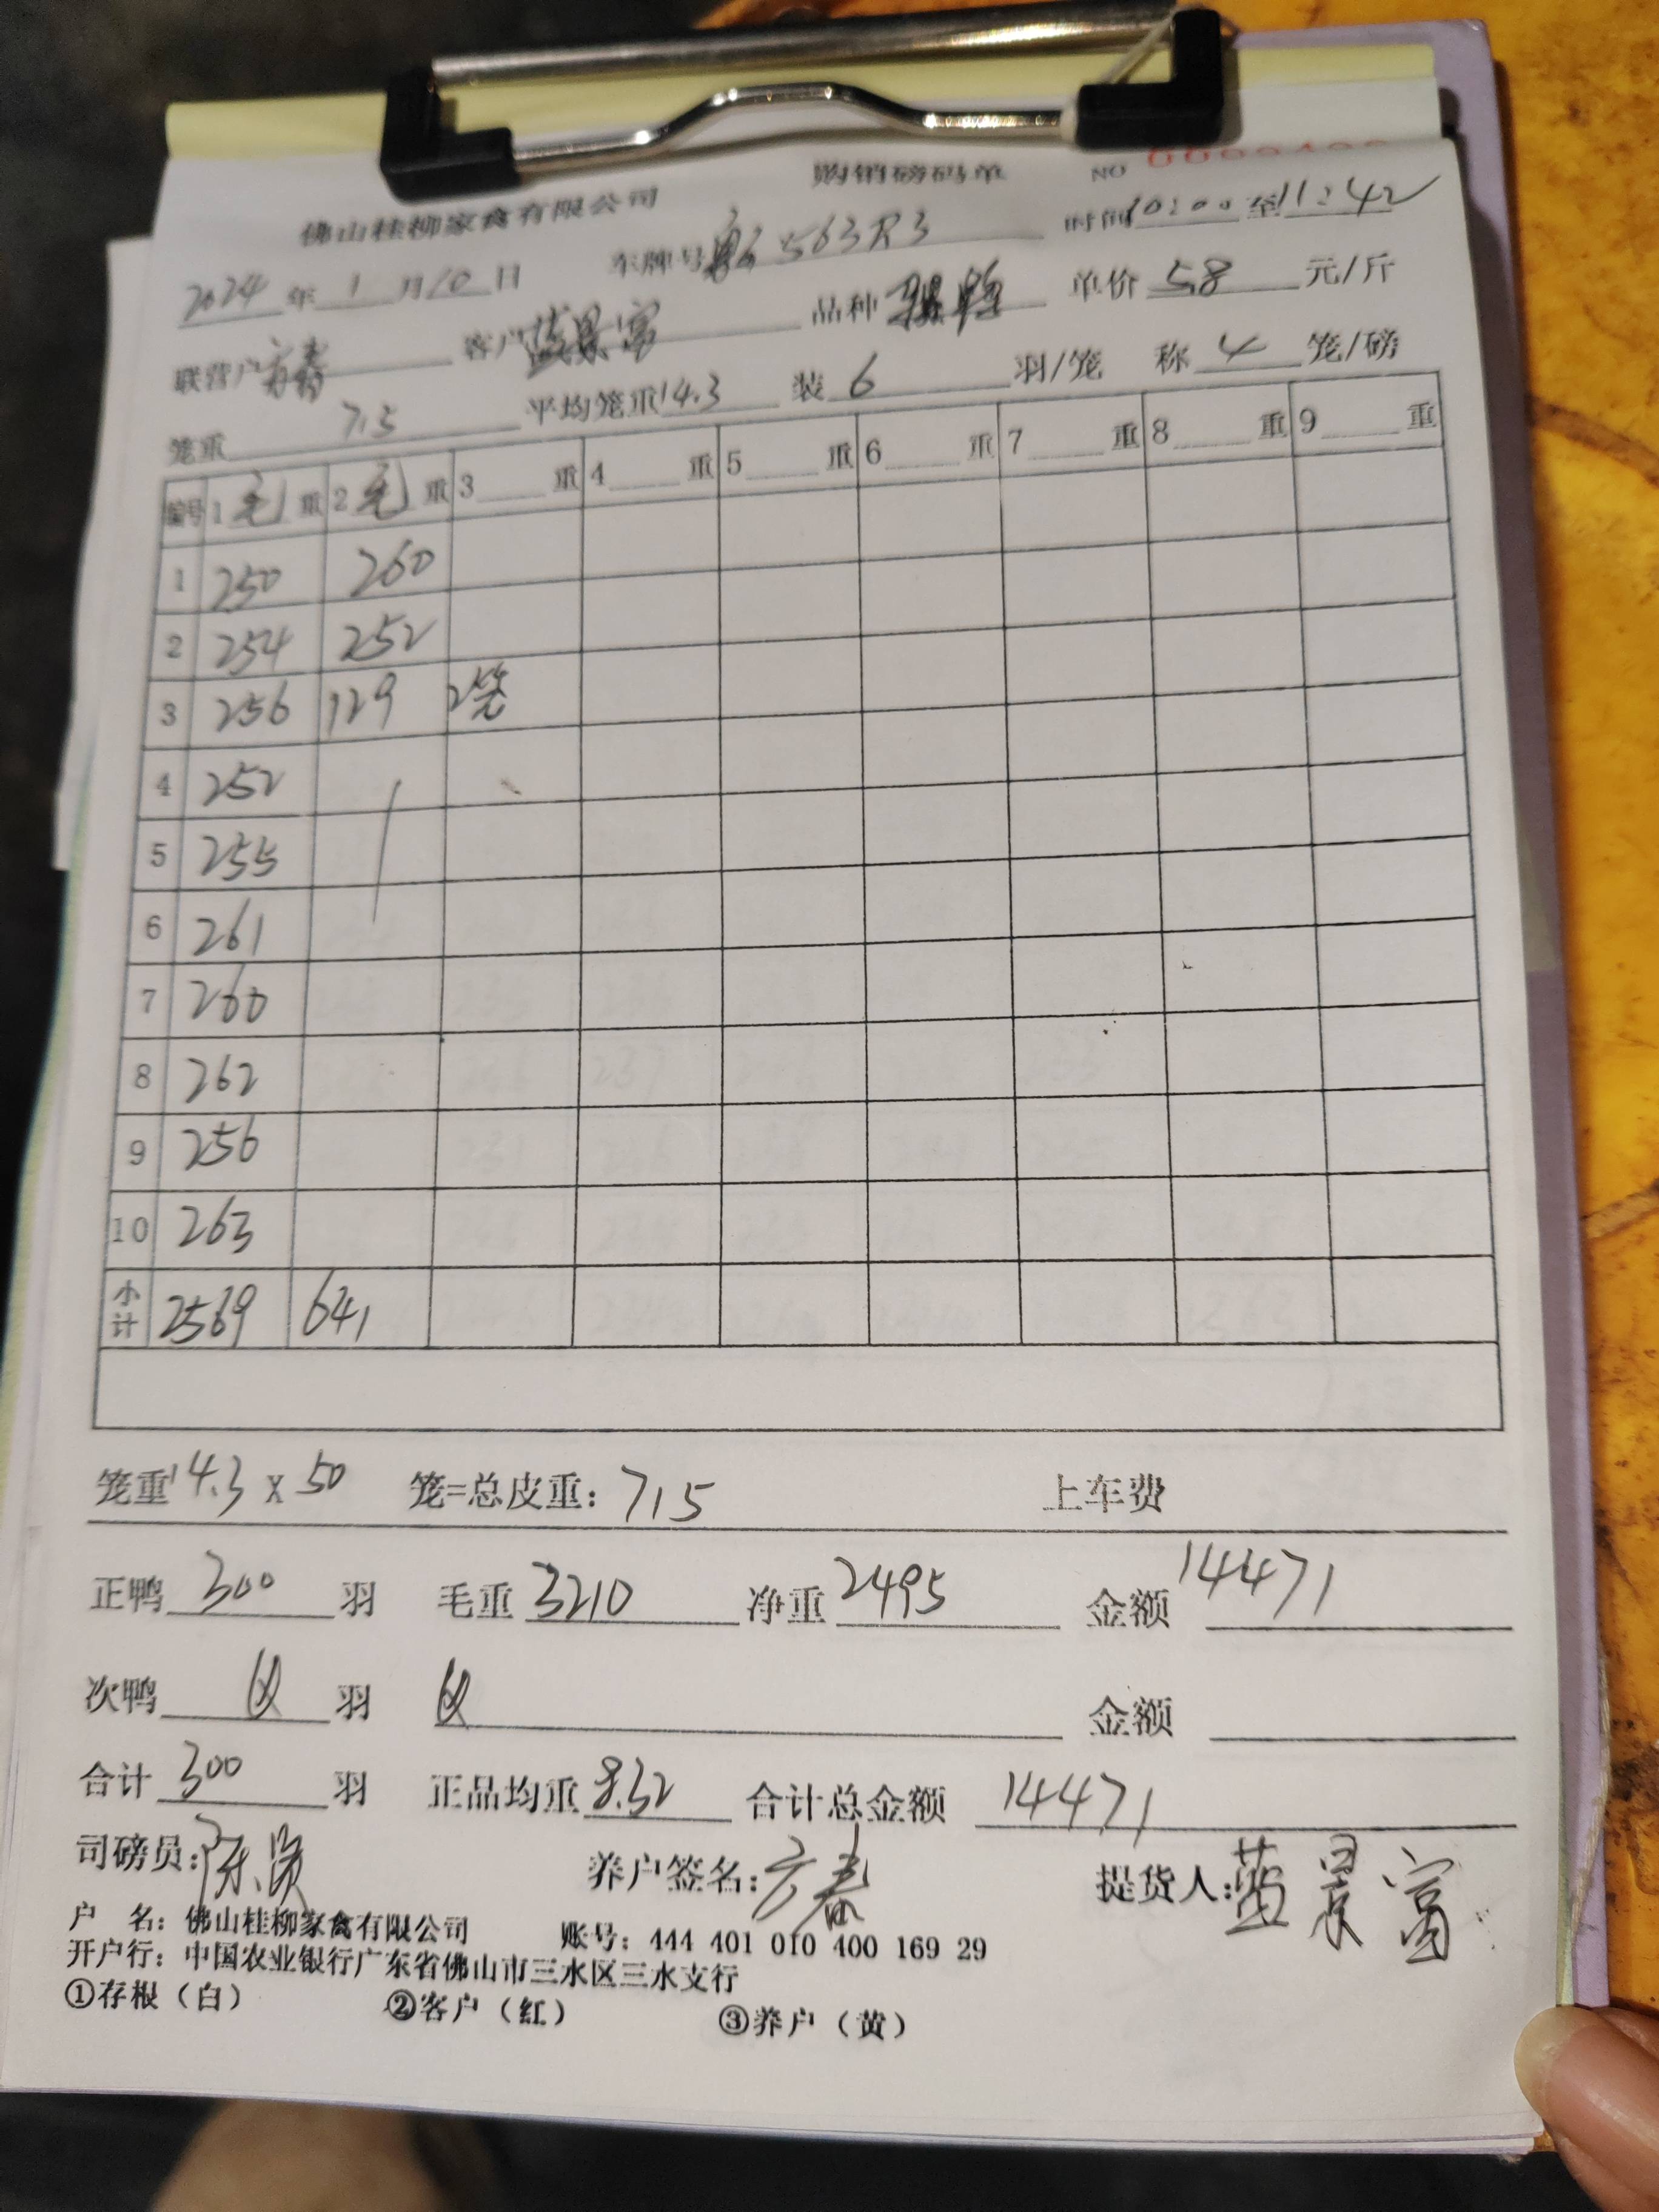 购销磅码单 NO
佛山桂柳家禽有限公司
2024年1月10日 车牌号 563R3 时间10:00至11:42
联营户 客户蓝景富 品种 单价5.8元/斤
笼重715 平均笼重14.3 装6羽/笼 称4笼/磅
编号 1毛重 2毛重 3重 4重 5重 6重 7重 8重 9重
1 250 260
2 254 252
3 256 129 2笼
4 252
5 255
6 261
7 260
8 262
9 256
10 263
小计 2569 641
笼重14.3 X 50 笼=总皮重:715 上车费
正鸭300羽 毛重3210 净重2495 金额14471
次鸭 羽 金额
合计300羽 正品均重8.32 合计总金额14471
司磅员: 养户签名: 提货人:蓝景富
户 名:佛山桂柳家禽有限公司 账号:444 401 010 400 169 29
开户行:中国农业银行广东省佛山市三水区三水支行
①存根(白) ②客户(红) ③养户(黄)